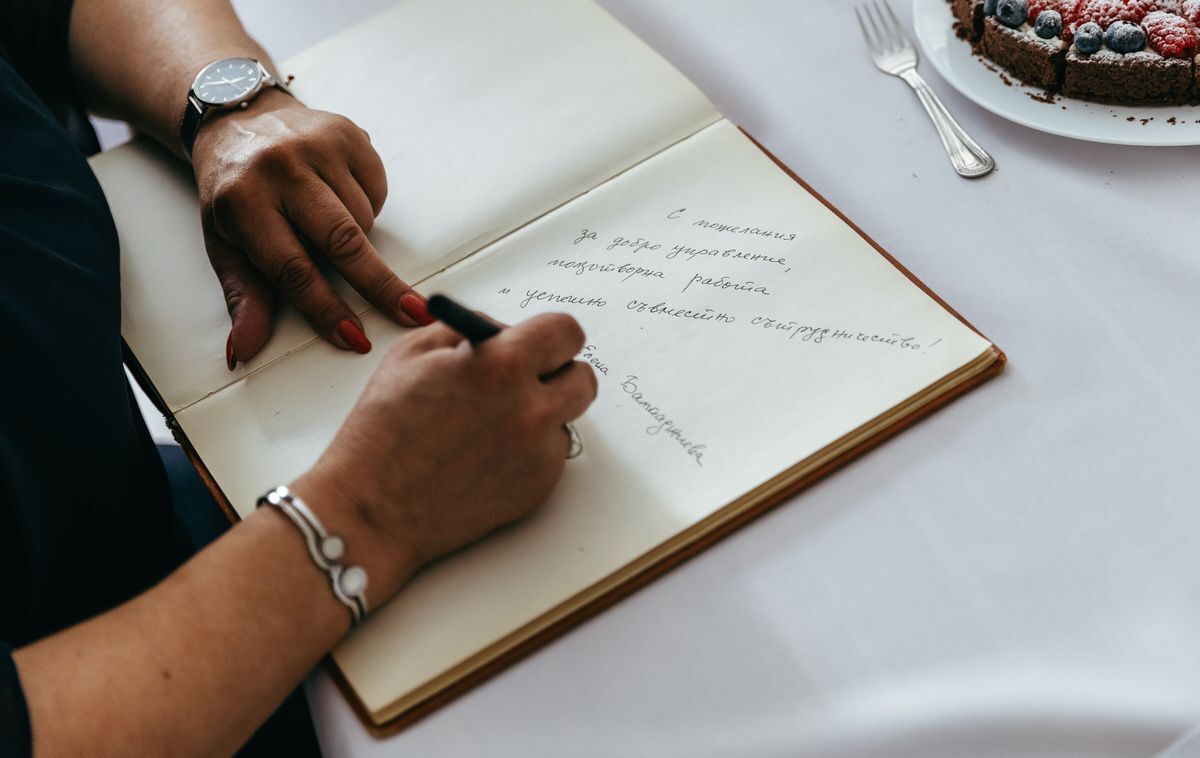 С пожелания
за добро управление,
ползотворна работа
и успешно съвместно сътрудничество!
Елена